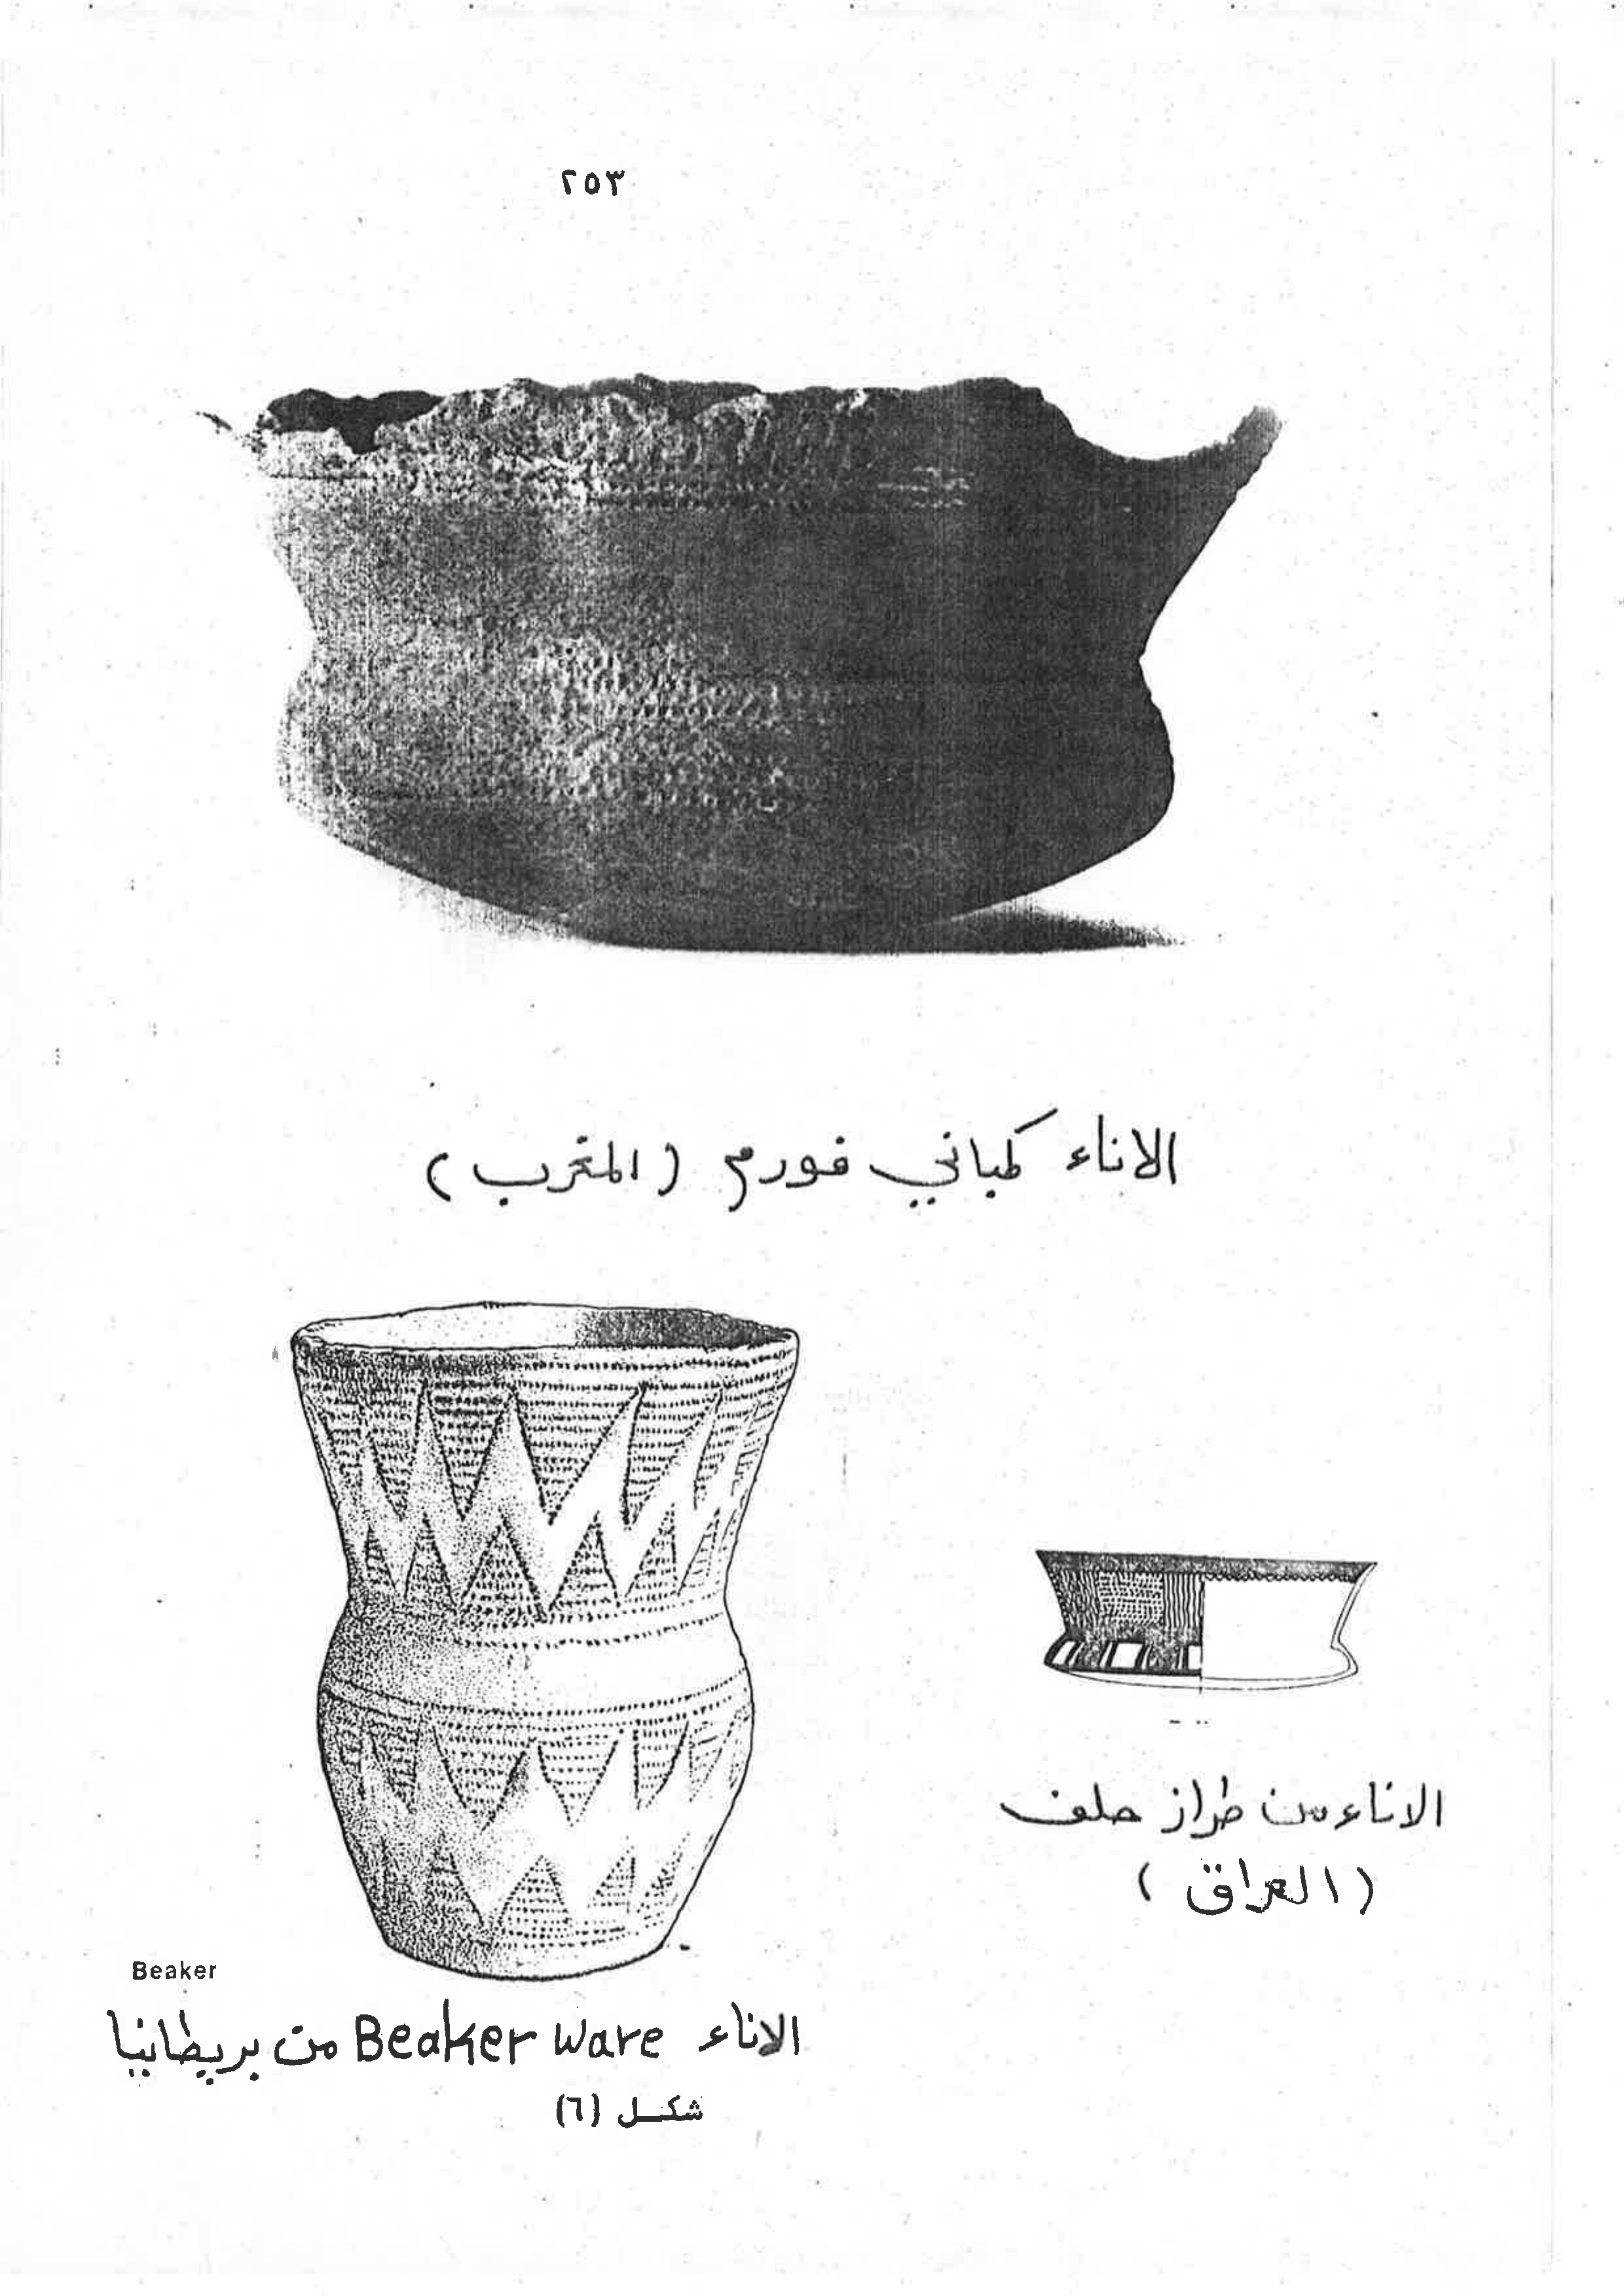 ٢٥٣
الاناء كمباني فورم (المغرب)
الاناء من طراز حلف
(العراق)
Beaker
الاناء Beaker Ware من بريطانيا
شكل (٦)